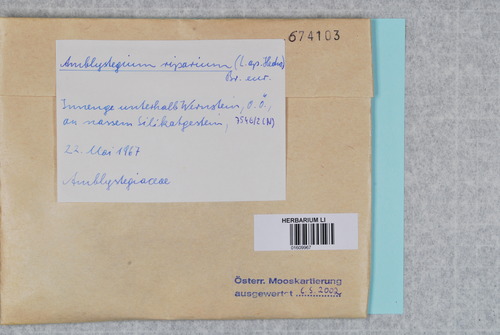 674103
Amblystegium riparium (L. ap. Hedw.)
Br. eur.
Innenge unterhalb Wernstein, O.Ö.,
an nassem Silikatgestein, 7546/2 (N)
22. Mai 1967
Amblystegiaceae
HERBARIUM LI
Österr. Mooskartierung
ausgewertet 6.5.2002